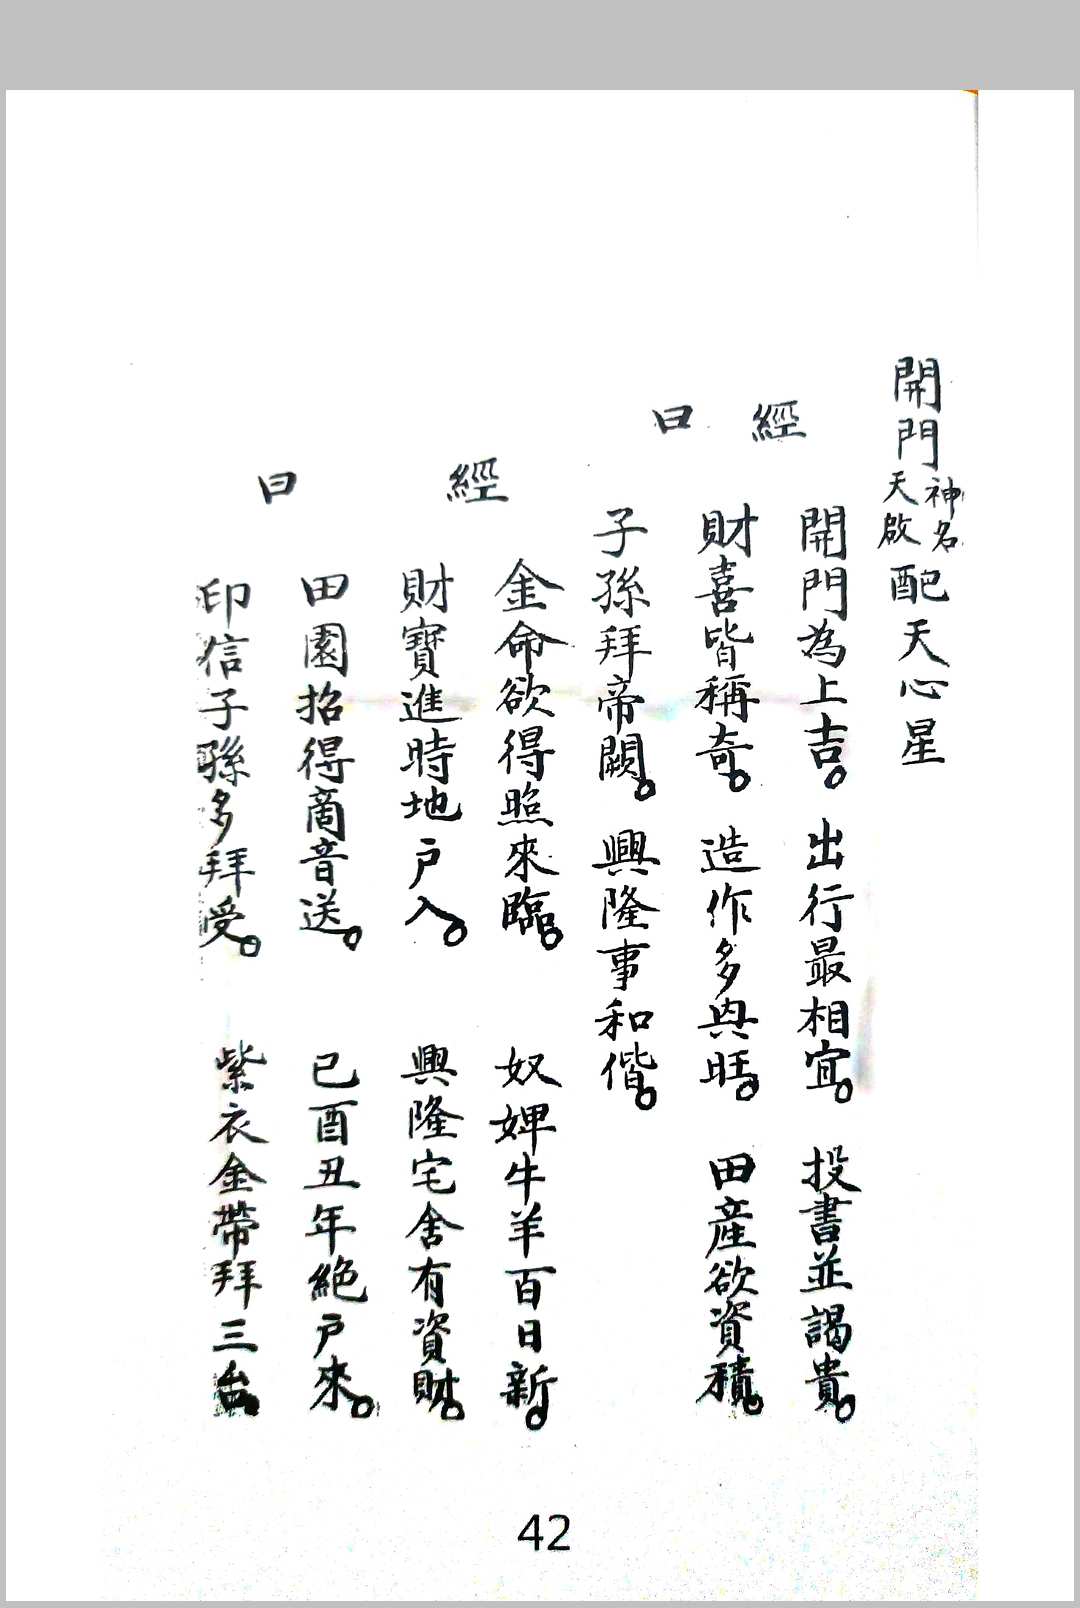 開門神名天啟配天心星
經曰
開門為上吉。出行最相宜。投書並謁貴。
財喜皆稱奇。造作多興旺。田產欲資積。
子孫拜帝闕。興隆事和偕。
經曰
金命欲得照來臨。奴婢牛羊百日新。
財寶進時地户入。興隆宅舍有資財。
田園招得商音送。已酉丑年絶户來。
印信子孫多拜受。紫衣金帶拜三台
42